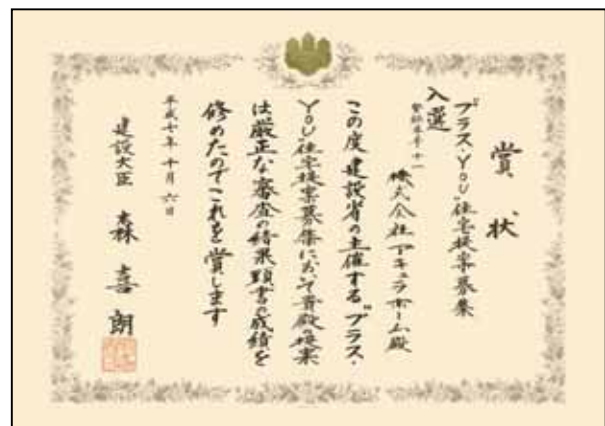 賞状
プラス・YOU住宅提案募集
入選
登録番号十一
株式会社アキュラホーム殿
この度建設省の主催する“プラス・
YOU”住宅提案募集において貴殿の提案
は厳正な審査の結果頭書の成績を
修めたのでこれを賞します
平成七年十月六日
建設大臣 森喜朗